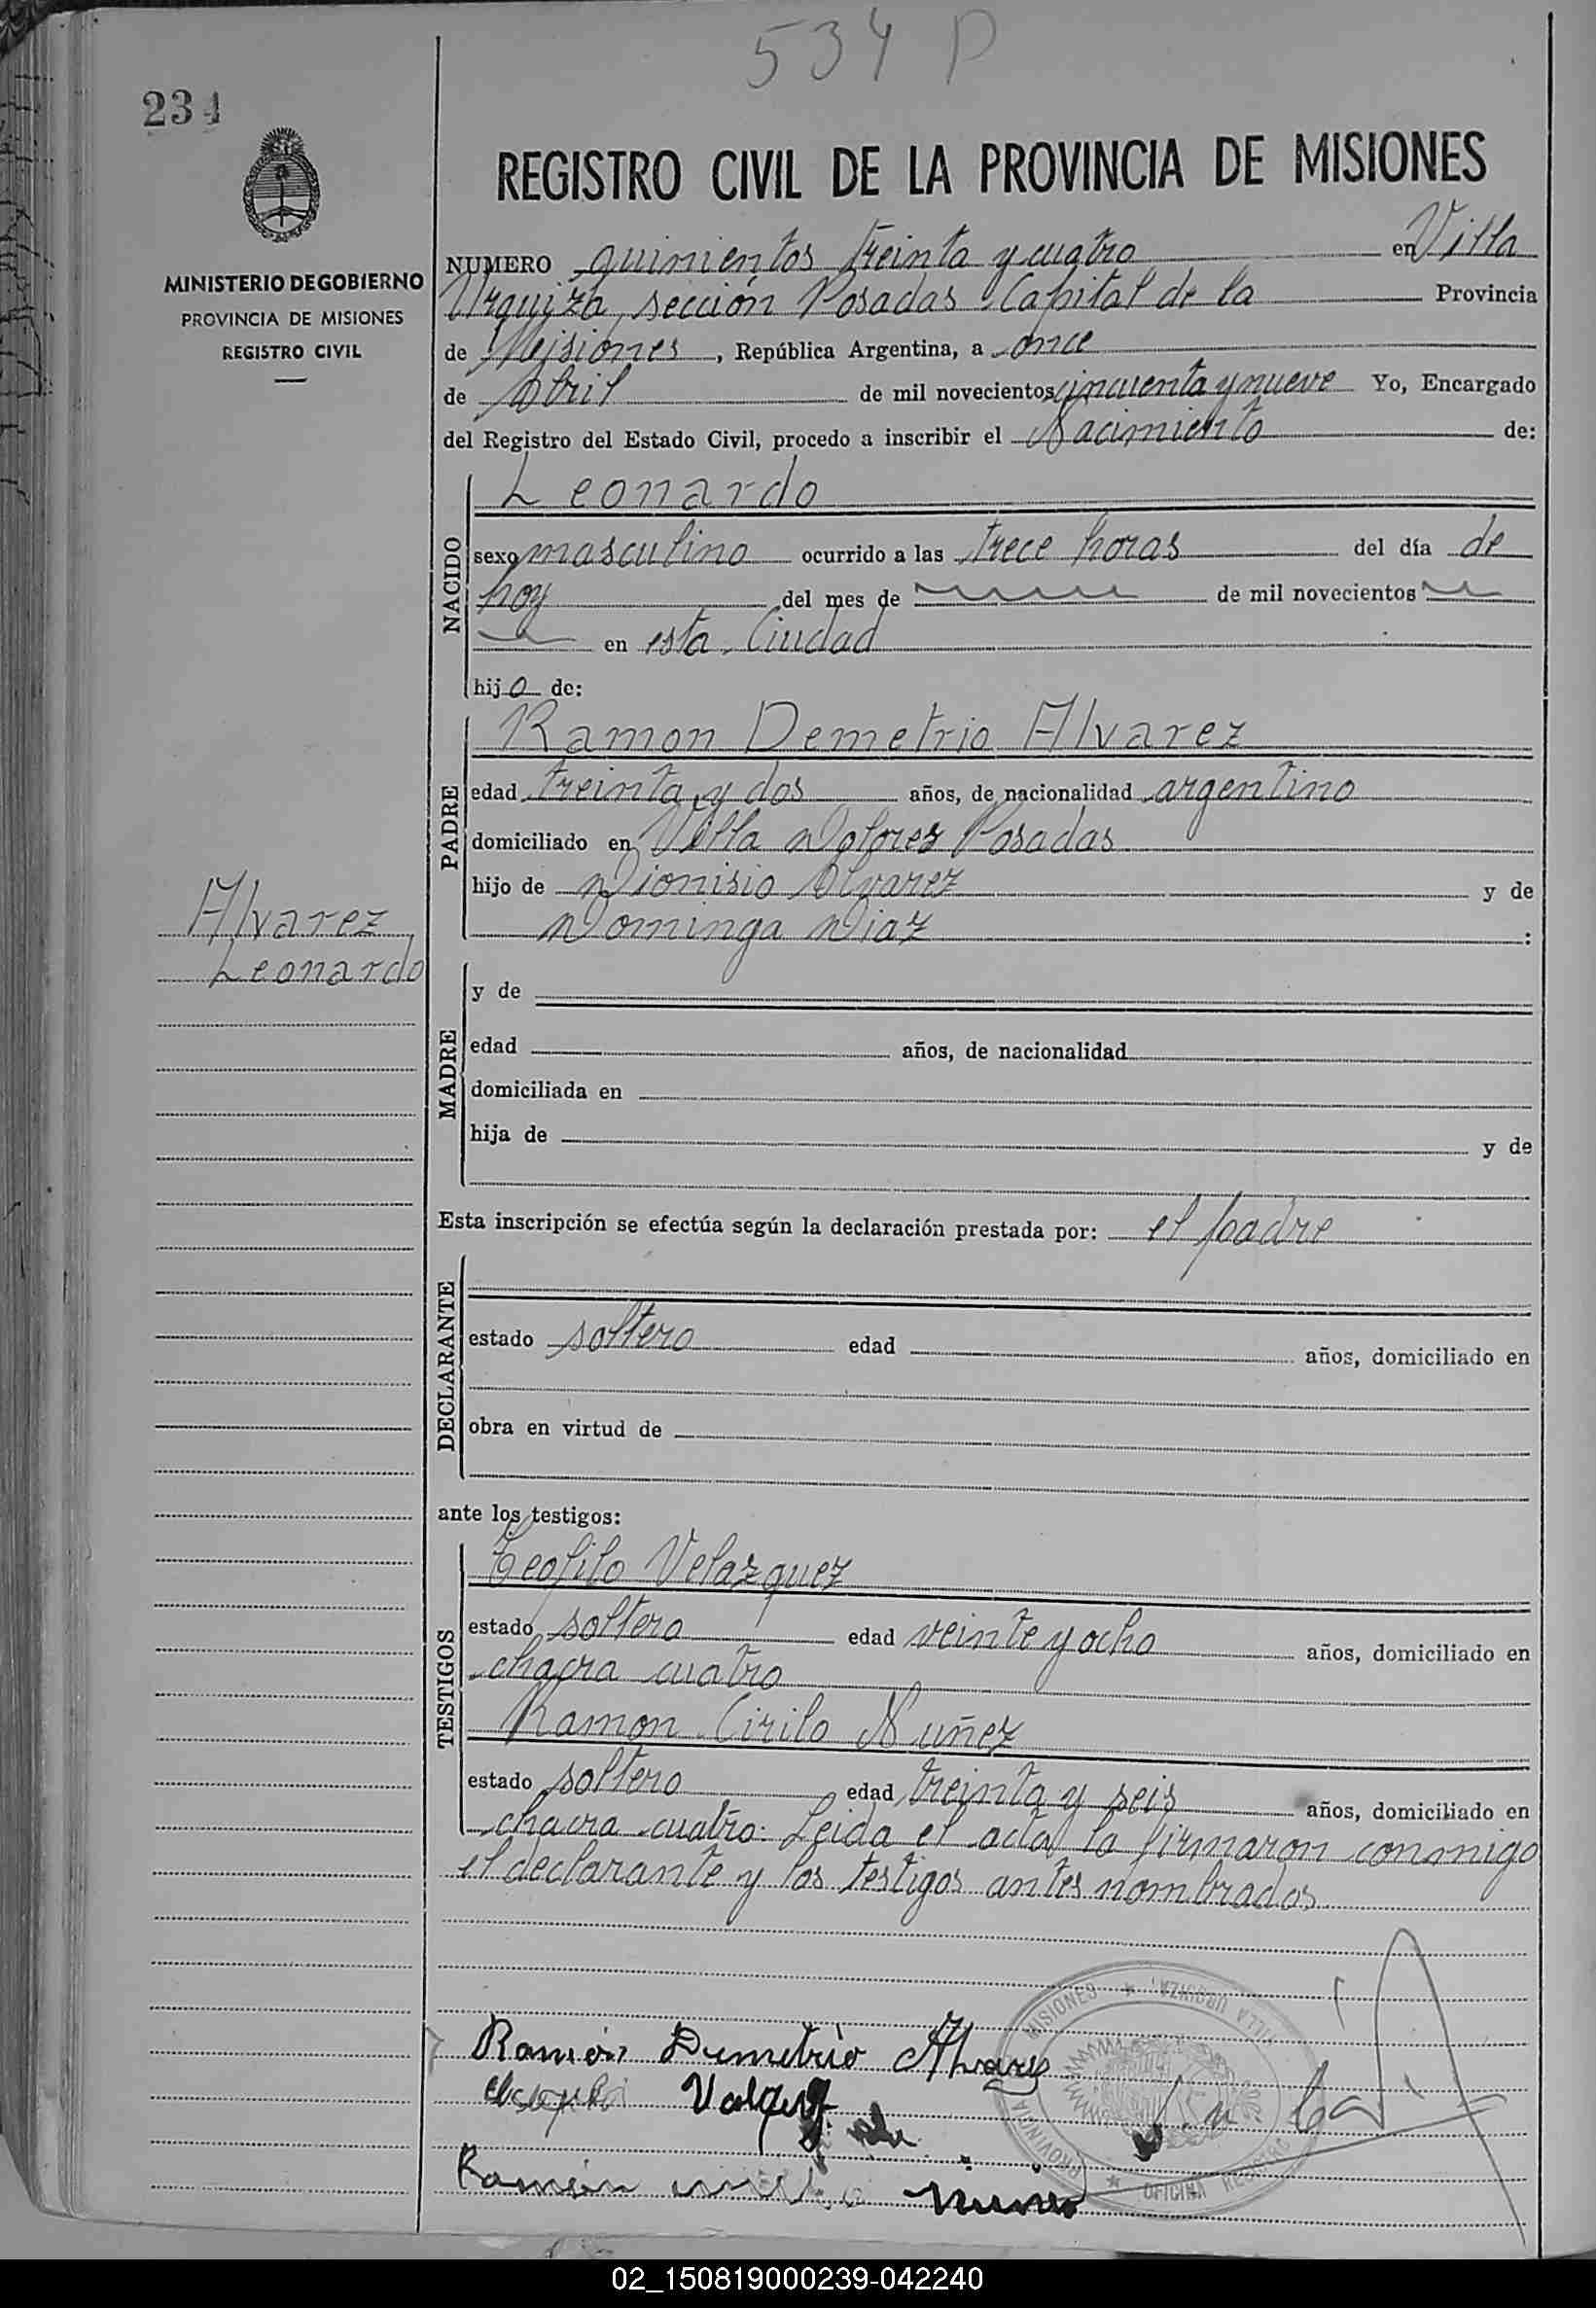 534 P
234
MINISTERIO DE GOBIERNO
PROVINCIA DE MISIONES
REGISTRO CIVIL
REGISTRO CIVIL DE LA PROVINCIA DE MISIONES
NUMERO quinientos treinta y cuatro en Villa
Urquiza, sección Posadas Capital de la Provincia
de Misiones, República Argentina, a once
de Abril de mil novecientos cincuenta y nueve Yo, Encargado
del Registro del Estado Civil, procedo a inscribir el Nacimiento de:
NACIDO
Leonardo
sexo masculino ocurrido a las trece horas del día de
hoy del mes de de mil novecientos
en esta Ciudad
hijo de:
PADRE
Ramon Demetrio Alvarez
edad treinta y dos años, de nacionalidad argentino
domiciliado en Villa Dolores Posadas
hijo de Dionisio Alvarez y de
Dominga Diaz :
Alvarez
Leonardo
MADRE
y de
edad años, de nacionalidad
domiciliada en
hija de y de
Esta inscripción se efectúa según la declaración prestada por: el padre
DECLARANTE
estado soltero edad años, domiciliado en
obra en virtud de
ante los testigos:
TESTIGOS
Teofilo Velazquez
estado soltero edad veinte y ocho años, domiciliado en
chacra cuatro
Ramon Cirilo Nuñez
estado soltero edad treinta y seis años, domiciliado en
chacra cuatro: Leida el acta la firmaron conmigo
el declarante y los testigos antes nombrados
Ramón Demetrio Alvarez
Ramón
MISIONES ★ VILLA URQUIZA
PROVINCIA ★ OFICINA
02_150819000239-042240